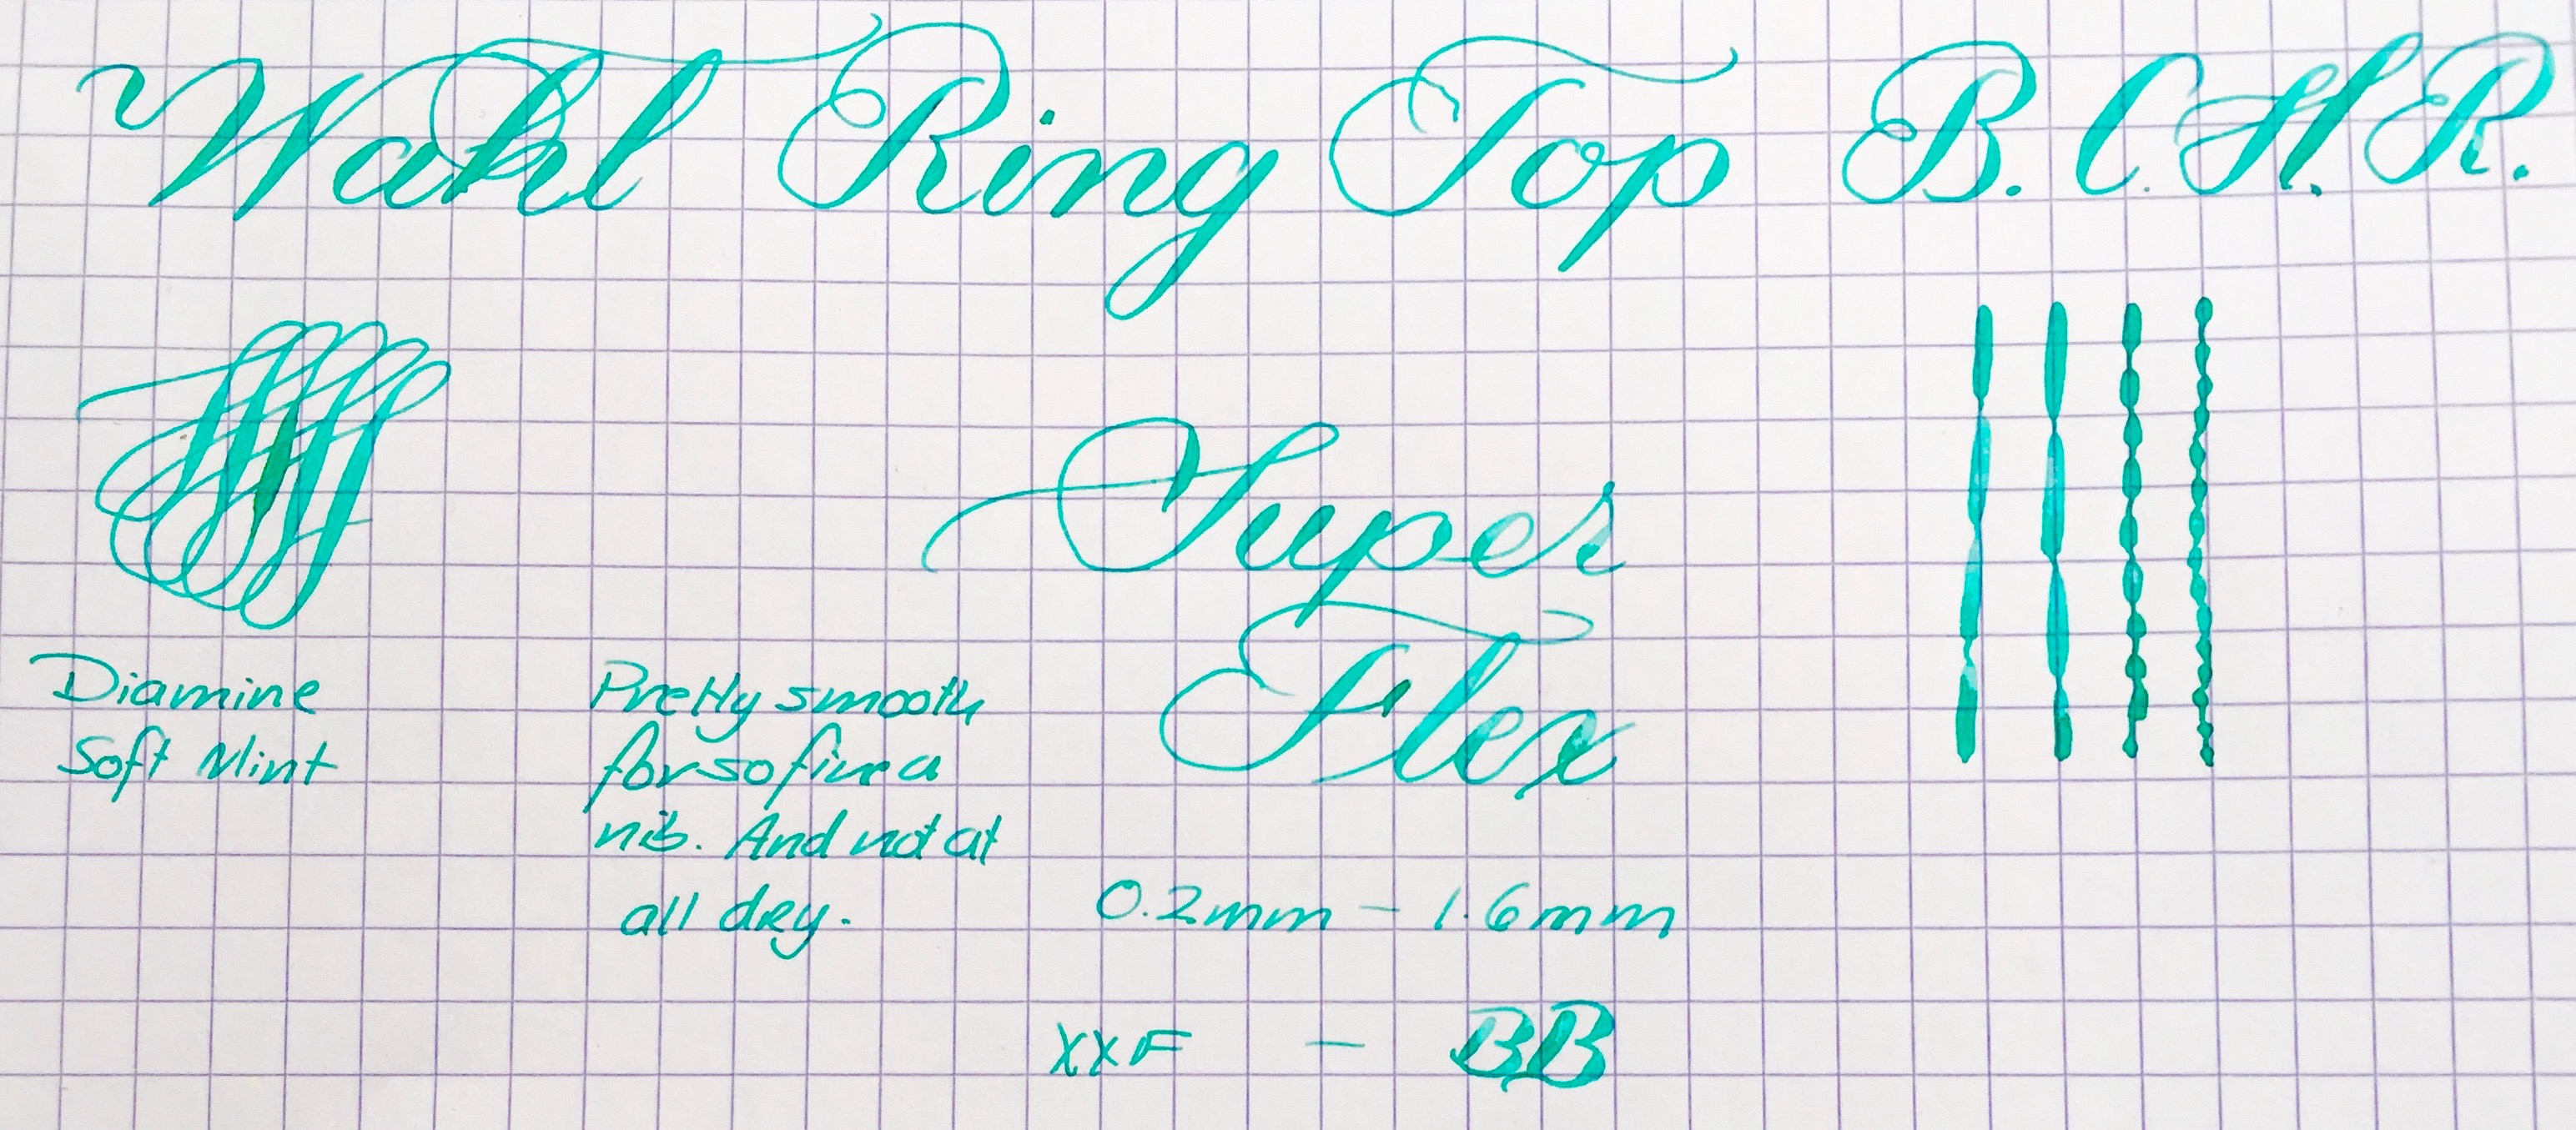 Wahl Ring Top B.C.H.R.
Super
Flex
Diamine
Soft Mint
Pretty smooth
for so fine a
nib. And not at
all dry.
0.2mm – 1.6mm
XXF – BB